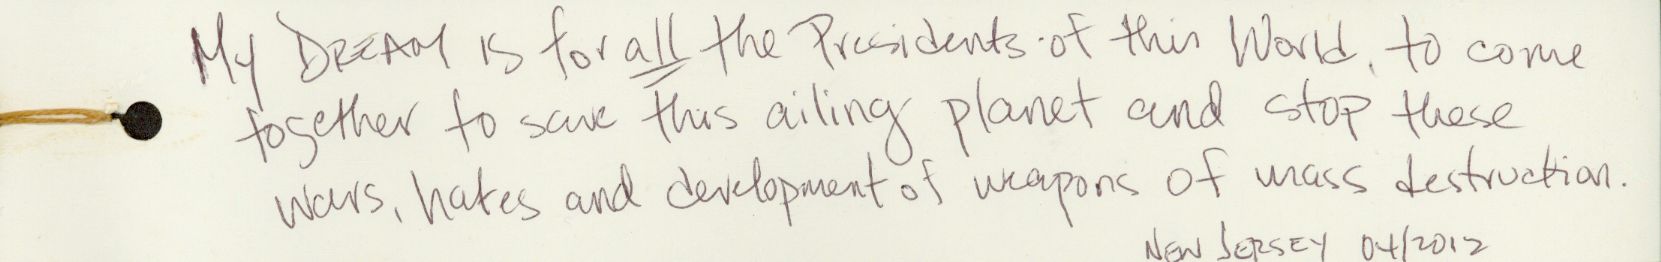 My DREAM is for all the Presidents of this World, to come
together to save this ailing planet and stop these
wars, hates and development of weapons of mass destruction.
NEW JERSEY 04/2012